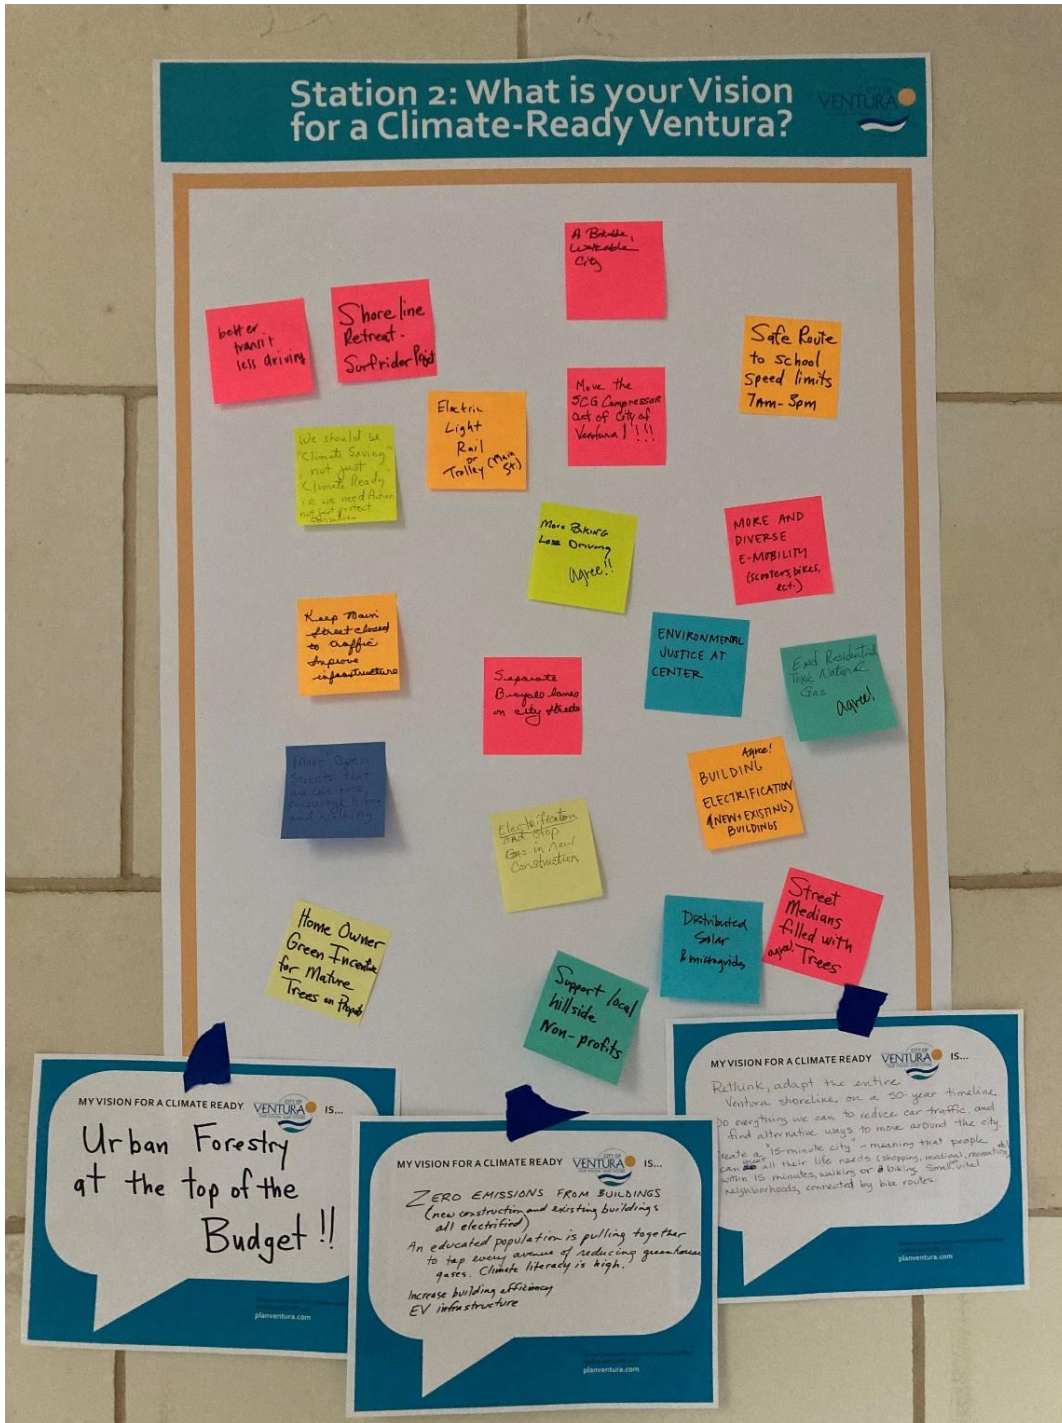 Station 2: What is your Vision
for a Climate-Ready Ventura?
CITY OF
VENTURA
A Bikable,
Walkable
City
better
transit
less driving
Shoreline
Retreat.
Surfrider Projct
Safe Route
to school
Speed limits
7AM-3pm
Move the
SCG Compressor
out of City of
Ventura!!!!
Electric
Light
Rail
or
Trolley (Main
St)
We should be
"Climate Saving"
not just
"Climate Ready"
i.e. we need Action
not just protect
ourselves
More Biking
Less Driving
agree!!
MORE AND
DIVERSE
E-MOBILITY
(scooters, bikes,
ect.)
Keep Main
Street closed
to traffic
Improve
infrastructure
ENVIRONMENAL
JUSTICE AT
CENTER
End Residential
Toxic Natural
Gas
agree!
Separate
Bicycle lanes
on city streets
More Open
Streets that
are car-free,
encourage biking
and walking
Agree!
BUILDING
ELECTRIFICATION
(NEW+EXISTING)
BUILDINGS
Electrification
and Stop
Gas in new
Construction
Street
Medians
filled with
agree! Trees
Distributed
Solar
& microgrids
Home Owner
Green Incentive
for Mature
Trees on
Support local
hillside
Non-profits
MY VISION FOR A CLIMATE READY CITY OF VENTURA IS...
Urban Forestry
at the top of the
Budget!!
planventura.com
MY VISION FOR A CLIMATE READY CITY OF VENTURA IS...
ZERO EMISSIONS FROM BUILDINGS
(new construction and existing buildings
all electrified)
An educated population is pulling together
to tap every avenue of reducing greenhouse
gases. Climate literacy is high.
Increase building efficiency
EV infrastructure
planventura.com
MY VISION FOR A CLIMATE READY CITY OF VENTURA IS...
Rethink, adapt the entire
Ventura shoreline, on a 50-year timeline
Do everything we can to reduce car traffic, and
find alternative ways to move around the city.
Create a "15-minute city" - meaning that people
can meet all their life needs (shopping, medical, recreation, etc)
within 15 minutes, walking or biking. Small, vital
neighborhoods, connected by bike routes.
planventura.com